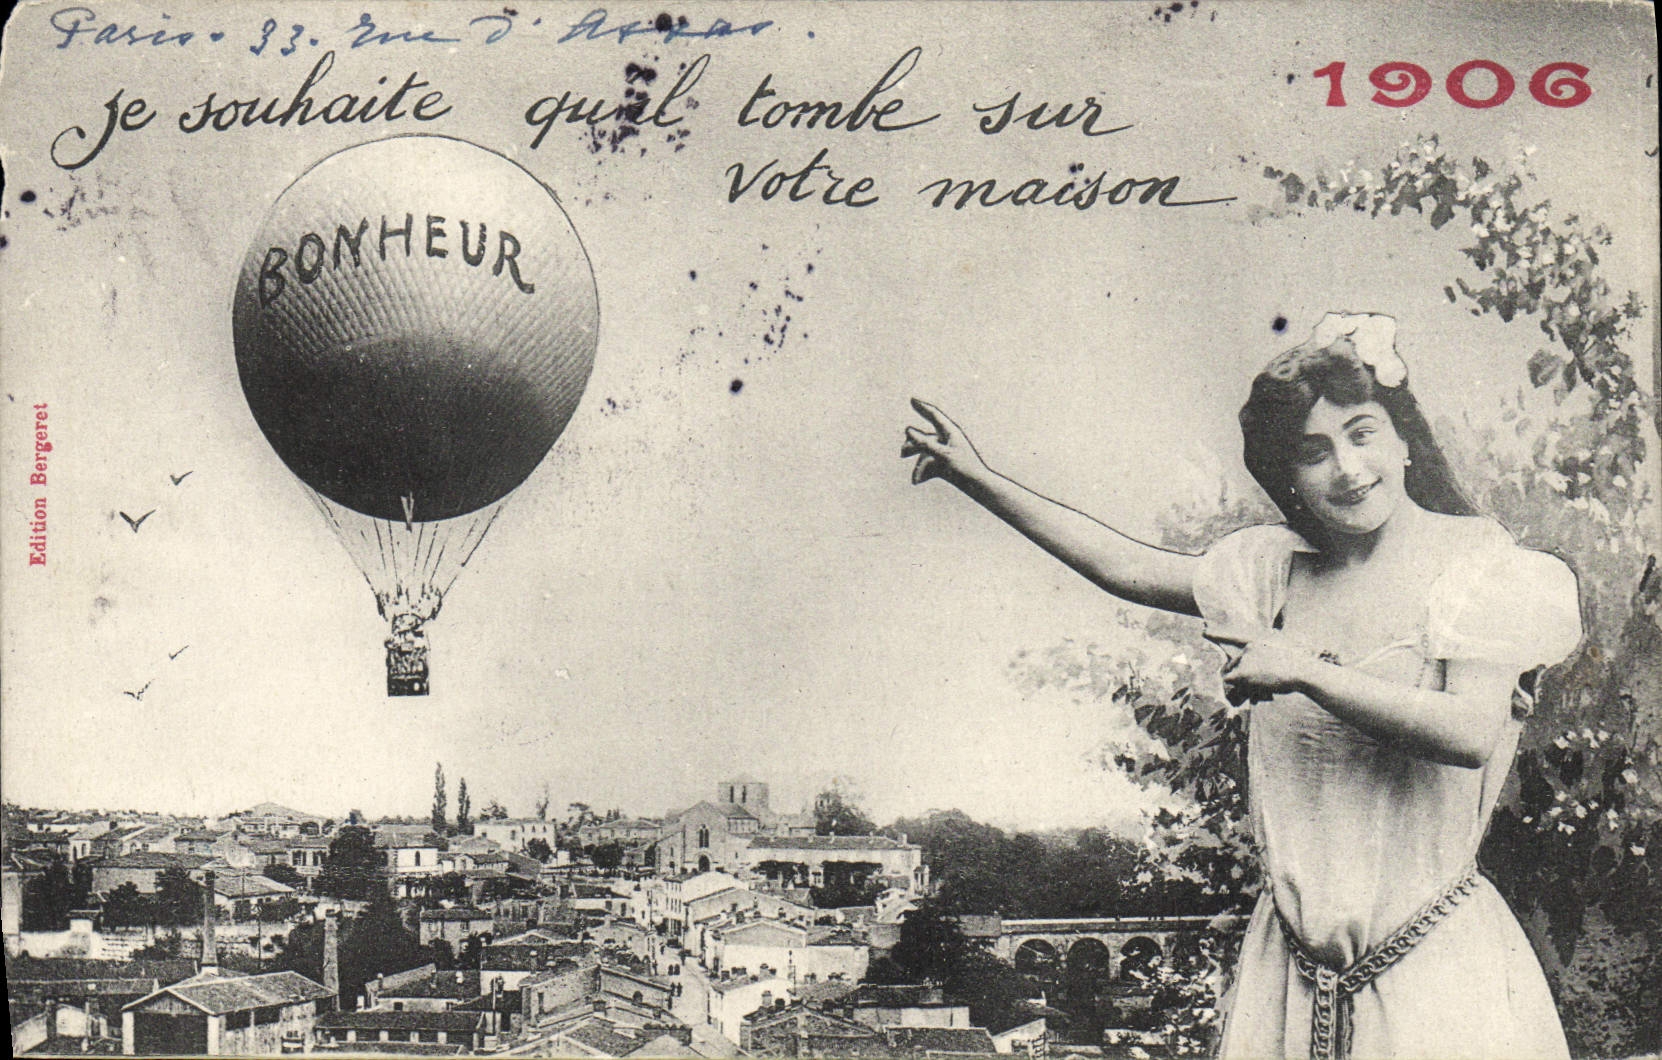 Paris. 33. Rue d'Assas.
1906
je souhaite qu'il tombe sur
votre maison
BONHEUR
Edition Bergeret